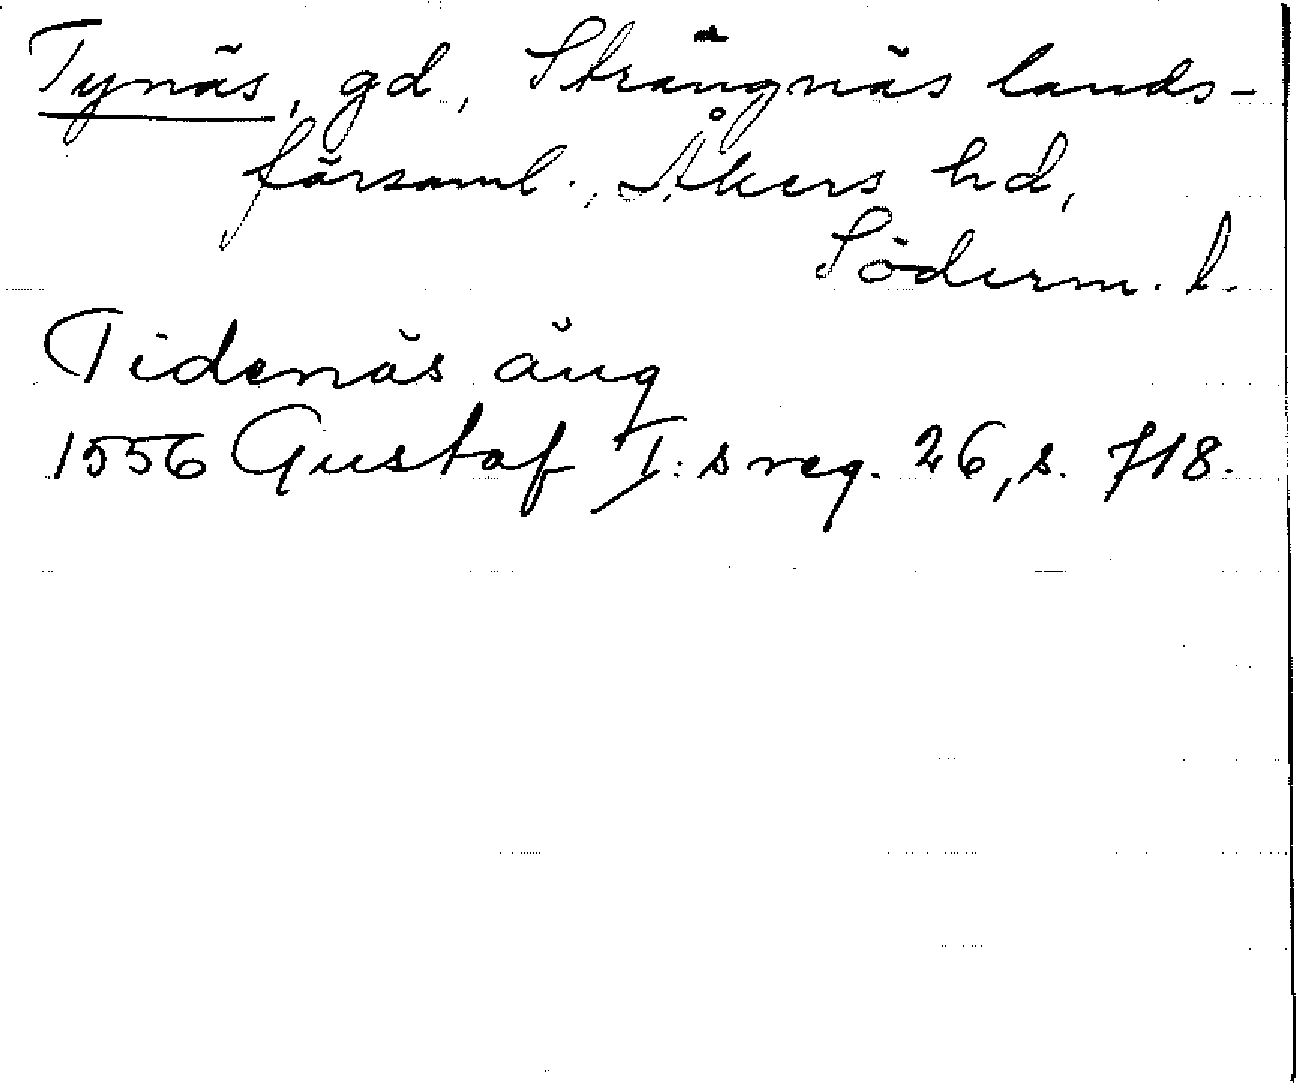 Tynäs, gd, Strängnäs lands-
församl., Åkers hd,
Söderm. l.
Tidenäs äng
1556 Gustaf I:s reg. 26, s. 718.